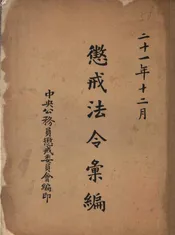 二十一年十二月
懲戒法令彙編
中央公務員懲戒委員會編印